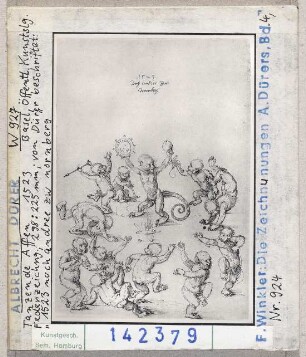 ALBRECHT DÜRER W 927
Tanzende Affen. 1523 Basel, Öffentl. Kunstslg.
Federzeichng., 298:225 mm; von Dürer beschriftet:
"1523 noch andree zw nornberg
1523
F. Winkler: Die Zeichnungen A. Dürers, Bd. 4,
Nr. 924
Kunstgesch.
Sem. Hamburg
142379